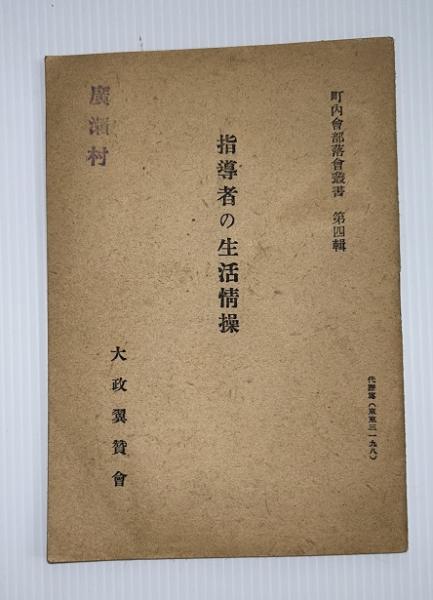 町内會部落會叢書 第四輯
指導者の生活情操
大政翼賛會
廣瀬村
代謄寫（東東三一九八）